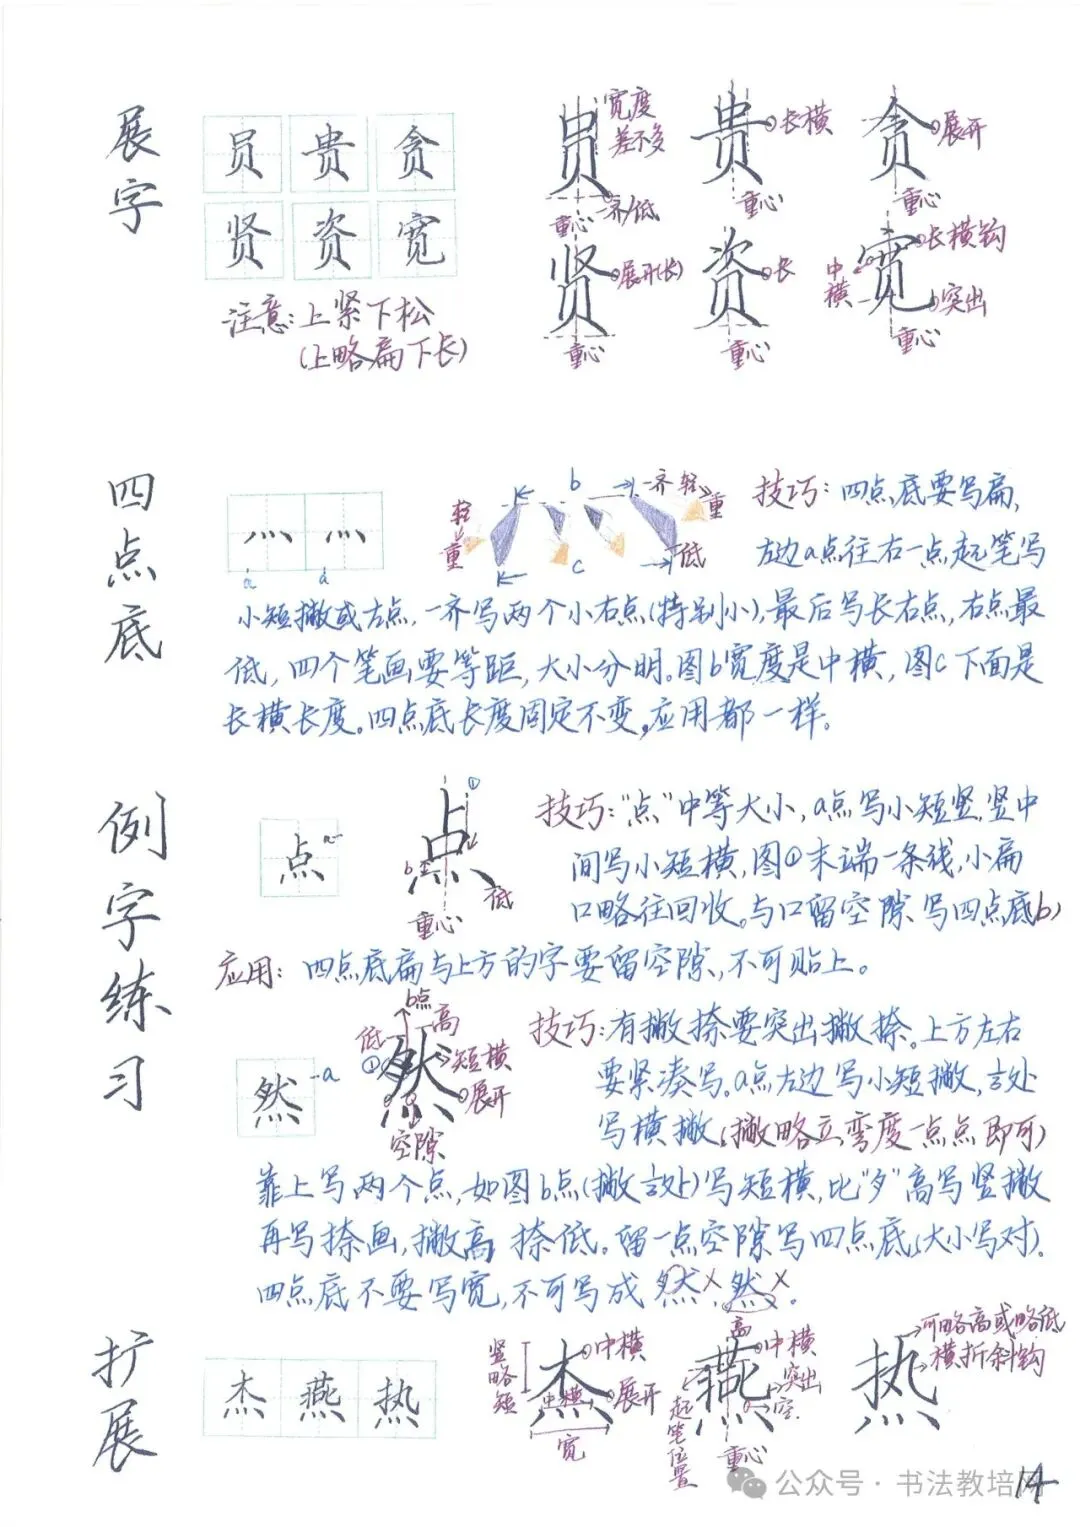 展字
员 贵 贪
贤 资 宽
注意：上紧下松
（上略扁下长）
员 宽度差不多 一齐/低 重心
贵 长横 重心
贪 展开 重心
贤 展开(长) 重心
资 长 重心
宽 中横 长横钩 突出 重心
四点底
灬 灬
a a
轻 重 b 一齐 轻 重 c 低
技巧：四点底要写扁，
左边a点往右一点起笔写
小短撇或左点，一齐写两个小右点(特别小)，最后写长右点，右点最
低，四个笔画要等距，大小分明。图b宽度是中横，图c下面是
长横长度。四点底长度固定不变，应用都一样。
例字练习
点 a
点 ① b 低 重心
技巧：“点”中等大小，a点写小短竖，竖中
间写小短横，图①末端一条线，小扁
口略往回收。与口留空隙写四点底b)
应用：四点底扁与上方的字要留空隙，不可贴上。
然 a
然 b点 高 低 ① 短横 展开 空隙
技巧：有撇捺要突出撇捺。上方左右
要紧凑写。a点左边写小短撇，起处
写横撇(撇略立，弯度一点点即可)
靠上写两个点，如图b点(撇起处)写短横，比“夕”高写竖撇
再写捺画，撇高，捺低。留一点空隙写四点底(大小写对)。
四点底不要写宽，不可写成 然×，然×。
扩展
杰 燕 热
杰 竖略短 中横 中横 展开 宽
燕 高 中横 突出 空 起笔位置 重心
热 可略高或略低 横折斜钩
公众号·书法教培网
14